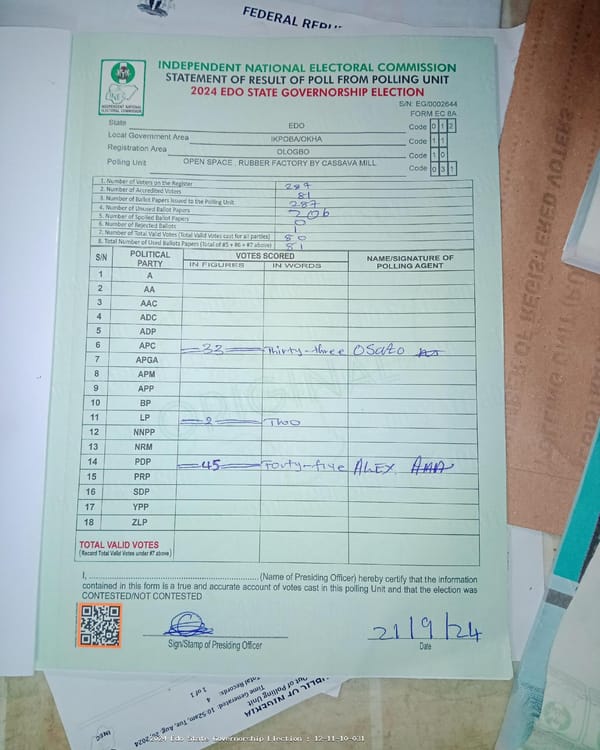 FEDERAL REPU
INDEPENDENT NATIONAL ELECTORAL COMMISSION
STATEMENT OF RESULT OF POLL FROM POLLING UNIT
2024 EDO STATE GOVERNORSHIP ELECTION
INDEPENDENT NATIONAL ELECTORAL COMMISSION
S/N: EG/0002644
FORM EC 8A
State EDO Code 0 1 2
Local Government Area IKPOBA/OKHA Code 1 1
Registration Area OLOGBO Code 1 0
Polling Unit OPEN SPACE , RUBBER FACTORY BY CASSAVA MILL Code 0 3 1
1. Number of Voters on the Register 287
2. Number of Accredited Voters 81
3. Number of Ballot Papers Issued to the Polling Unit 287
4. Number of Unused Ballot Papers 206
5. Number of Spoiled Ballot Papers 0
6. Number of Rejected Ballots 1
7. Number of Total Valid Votes (Total Valid Votes cast for all parties) 80
8. Total Number of Used Ballots Papers (Total of #5 + #6 + #7 above) 81
S/N POLITICAL PARTY VOTES SCORED NAME/SIGNATURE OF POLLING AGENT
IN FIGURES IN WORDS
1 A
2 AA
3 AAC
4 ADC
5 ADP
6 APC 33 Thirty-three OSATO
7 APGA
8 APM
9 APP
10 BP
11 LP 2 Two
12 NNPP
13 NRM
14 PDP 45 Forty-five ALEX
15 PRP
16 SDP
17 YPP
18 ZLP
ORIGINAL
TOTAL VALID VOTES
(Record Total Valid Votes under #7 above)
I, (Name of Presiding Officer) hereby certify that the information
contained in this form is a true and accurate account of votes cast in this polling Unit and that the election was
CONTESTED/NOT CONTESTED
21/9/24
Sign/Stamp of Presiding Officer Date
OF REGISTERED VOTERS
PUBLIC OF NIGERIA
Out of Polling Unit
Time Generated: 10:52am, Tue, Aug
Total Records: 4
1 of 1
INEC
2024 Edo State Governorship Election : 12-11-10-031